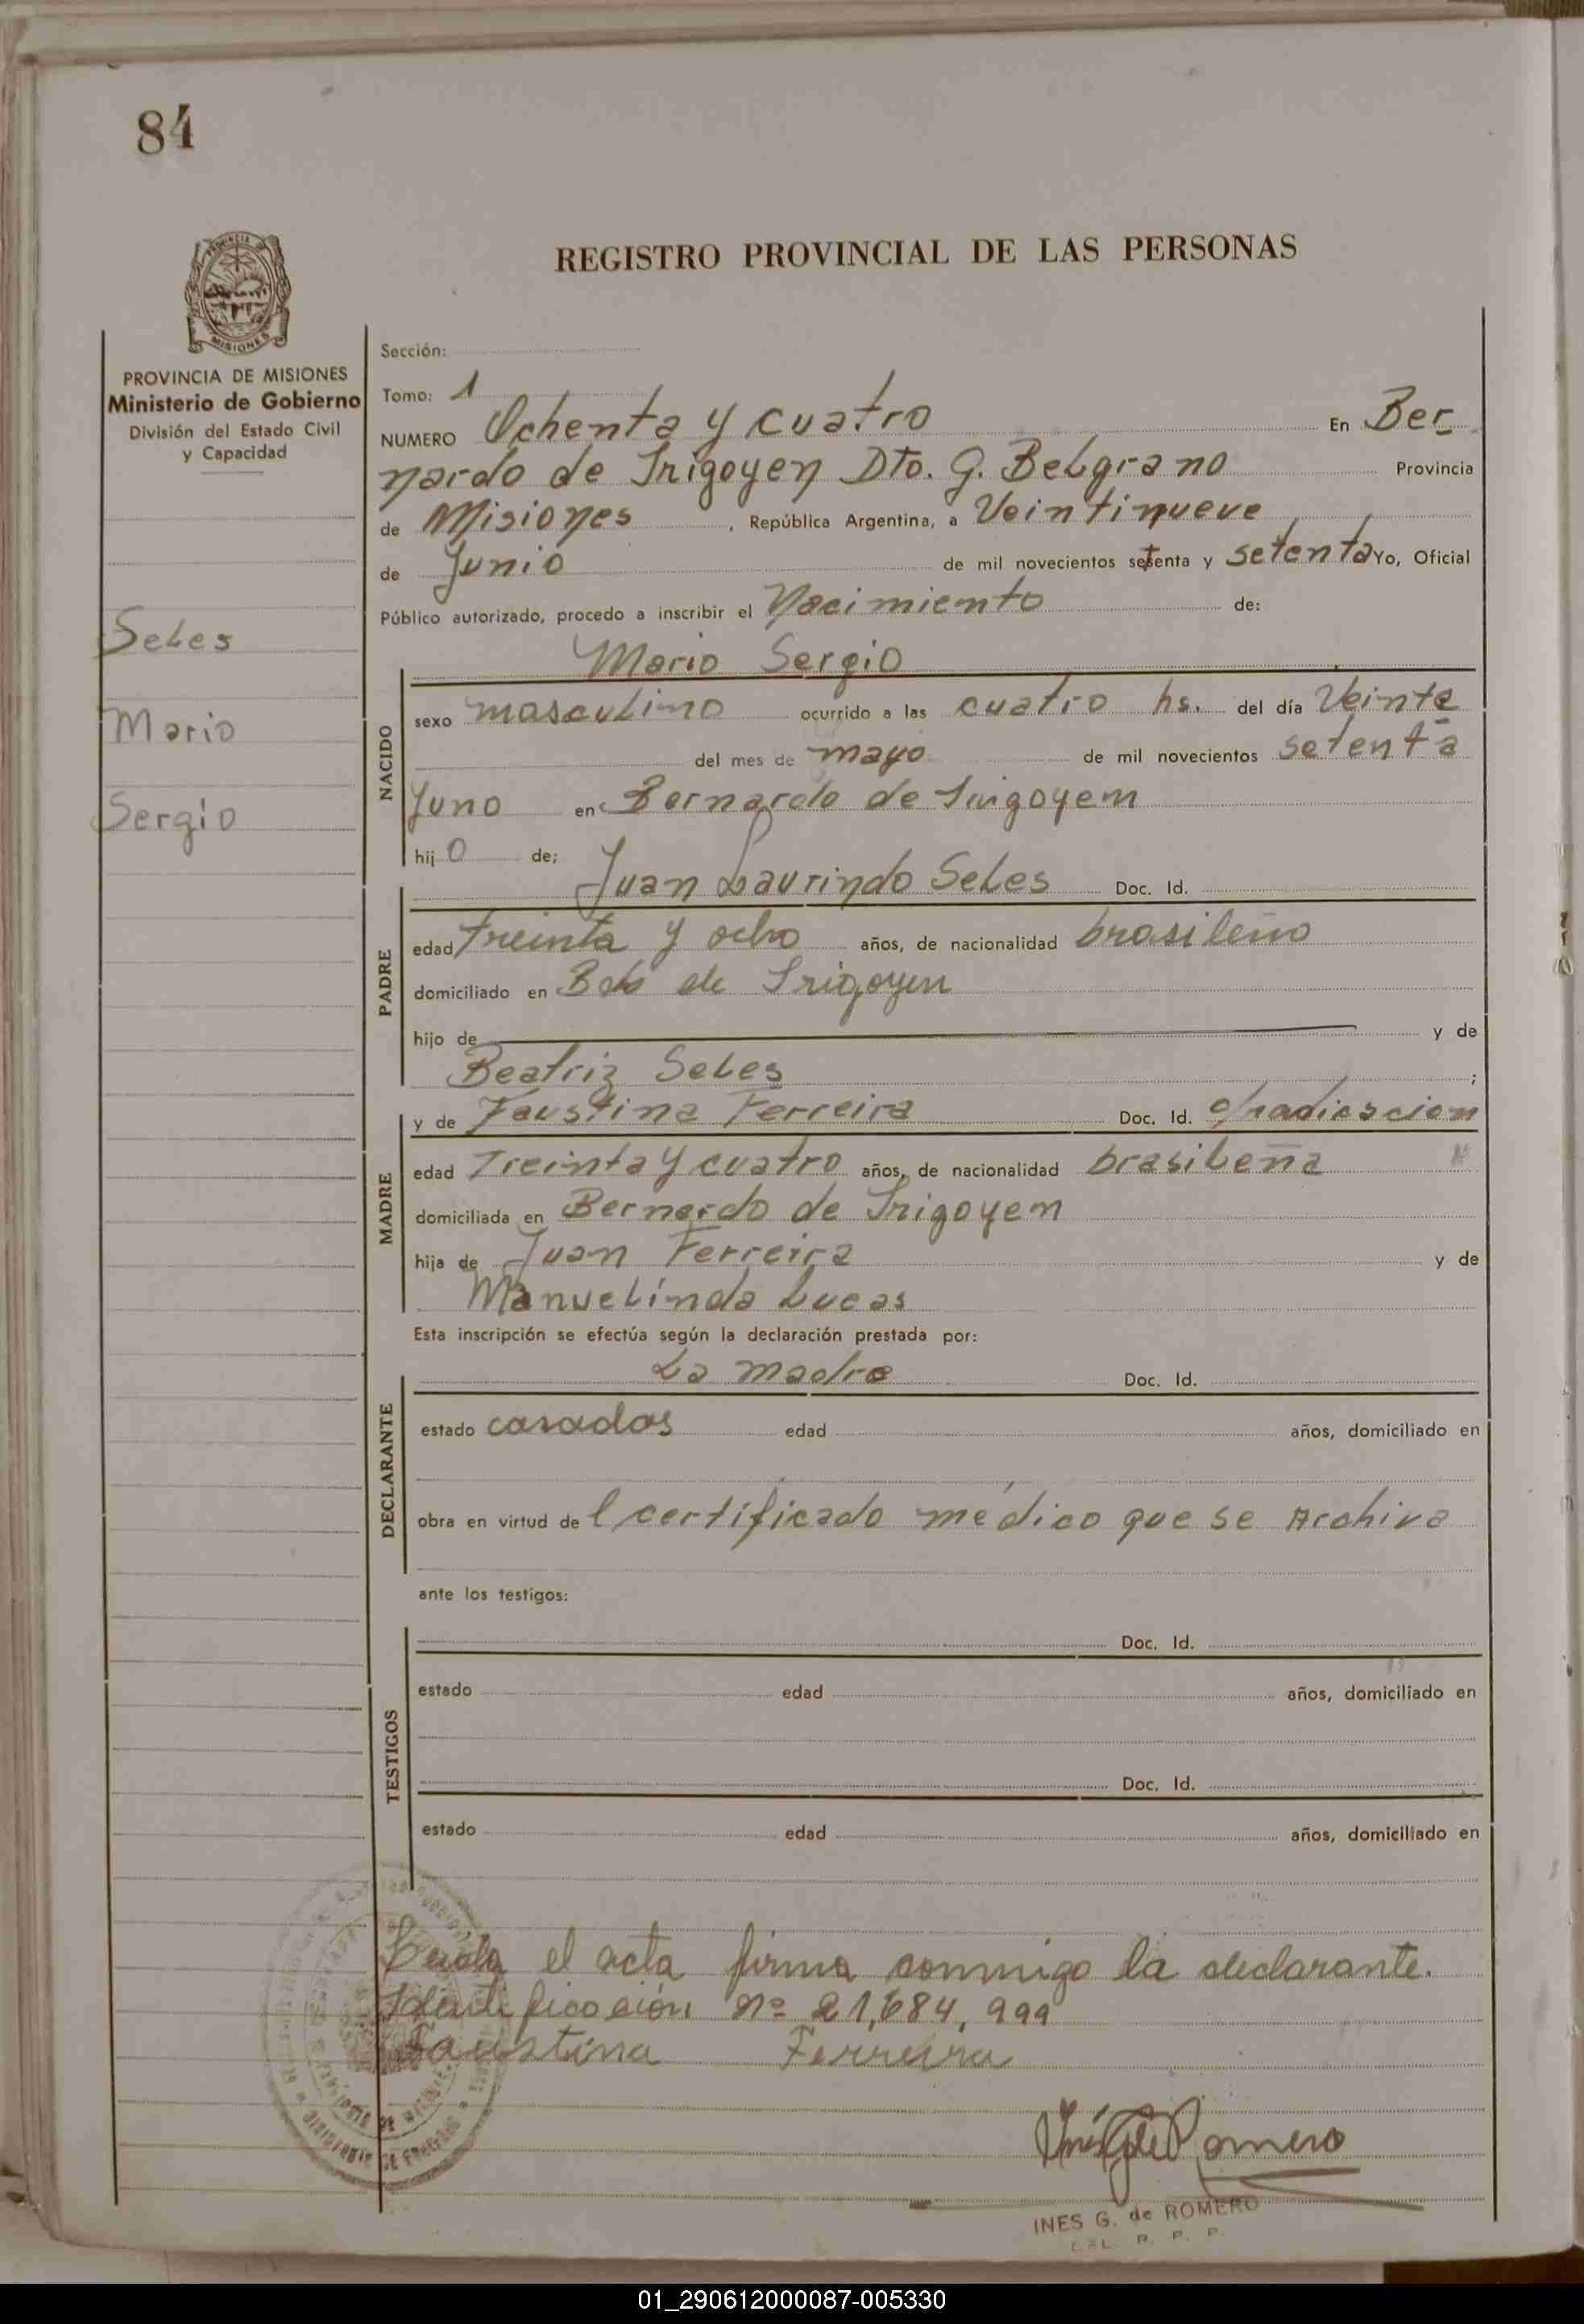 84
REGISTRO PROVINCIAL DE LAS PERSONAS
MISIONES
PROVINCIA DE MISIONES
Ministerio de Gobierno
División del Estado Civil
y Capacidad
Seles
Mario
Sergio
Sección:
Tomo: 1
NUMERO Ochenta y cuatro En Ber
nardo de Irigoyen Dto. G. Belgrano Provincia
de Misiones , República Argentina, a Veintinueve
de Junio de mil novecientos setenta y setenta Yo, Oficial
Público autorizado, procedo a inscribir el Nacimiento de:
Mario Sergio
NACIDO
sexo masculino ocurrido a las cuatro hs. del día Veinte
del mes de mayo de mil novecientos setenta
y uno en Bernardo de Irigoyen
hij o de;
Juan Laurindo Seles Doc. Id.
PADRE
edad treinta y ocho años, de nacionalidad brasileño
domiciliado en Bdo de Irigoyen
hijo de y de
Beatriz Seles ;
y de Faustina Ferreira Doc. Id.
MADRE
edad Treinta y cuatro años, de nacionalidad brasileña
domiciliada en Bernardo de Irigoyen
hija de Juan Ferreira y de
Manuelinda Lucas
Esta inscripción se efectúa según la declaración prestada por:
La madre Doc. Id.
DECLARANTE
estado casados edad años, domiciliado en
obra en virtud de l certificado médico que se Archiva
ante los testigos:
Doc. Id.
TESTIGOS
estado edad años, domiciliado en
Doc. Id.
estado edad años, domiciliado en
el acta firma conmigo la declarante.
Identificación nº 21,684,999
Faustina Ferreira
INES G. de ROMERO
01_290612000087-005330